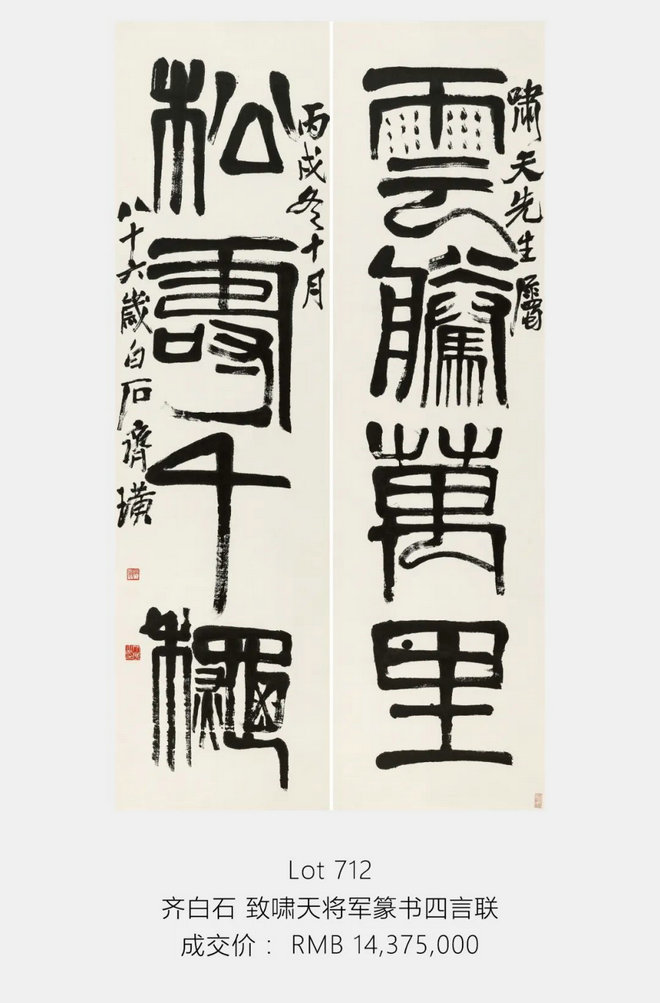 嘯天先生屬
雲騰萬里
丙戌冬十月
松壽千龝
八十六歲白石齊璜
Lot 712
齐白石 致啸天将军篆书四言联
成交价： RMB 14,375,000